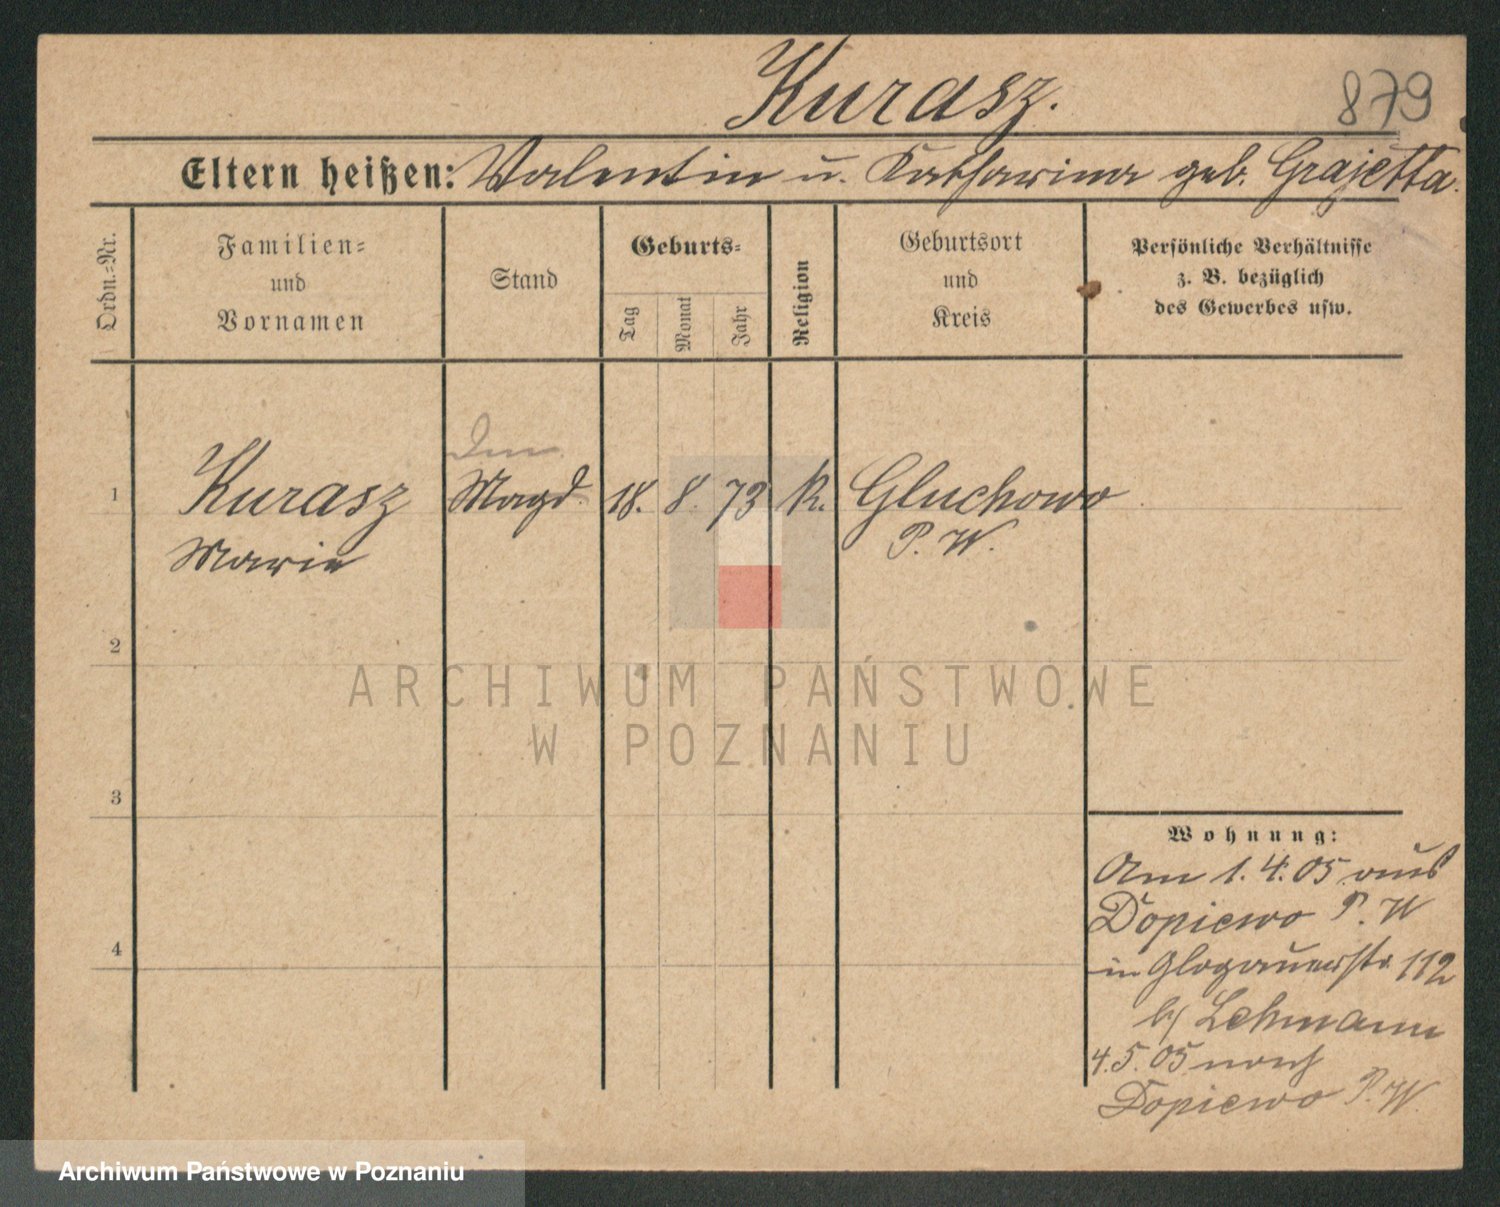 Kurasz.
879
Eltern heißen: Valentin u. Katharina geb. Grajetta.
Ordn.-Nr.
Familien-
und
Vornamen
Stand
Geburts-
Tag
Monat
Jahr
Religion
Geburtsort
und
Kreis
Persönliche Verhältnisse
z. B. bezüglich
des Gewerbes usw.
1 Kurasz Magd. 18. 8. 73 k. Gluchowo
Marie P. W.
2
3
4
Wohnung:
Am 1. 4. 05 aus
Dopiewo P. W
in Glogauerstr. 112
b/ Lehmann
4. 5. 05 nach
Dopiewo P. W.
ARCHIWUM PAŃSTWOWE
W POZNANIU
Archiwum Państwowe w Poznaniu